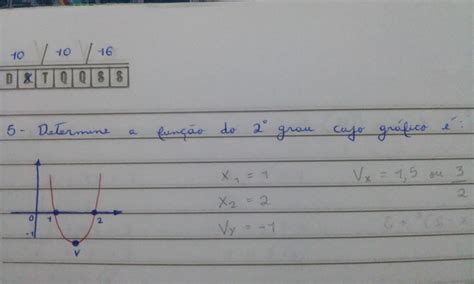 10 / 10 / 16
D S T Q Q S S
5 - Determine a função do 2° grau cujo gráfico é:
x₁ = 1
Vx = 1,5 ou 3/2
x₂ = 2
Vy = -1
0 1 2
-1
V